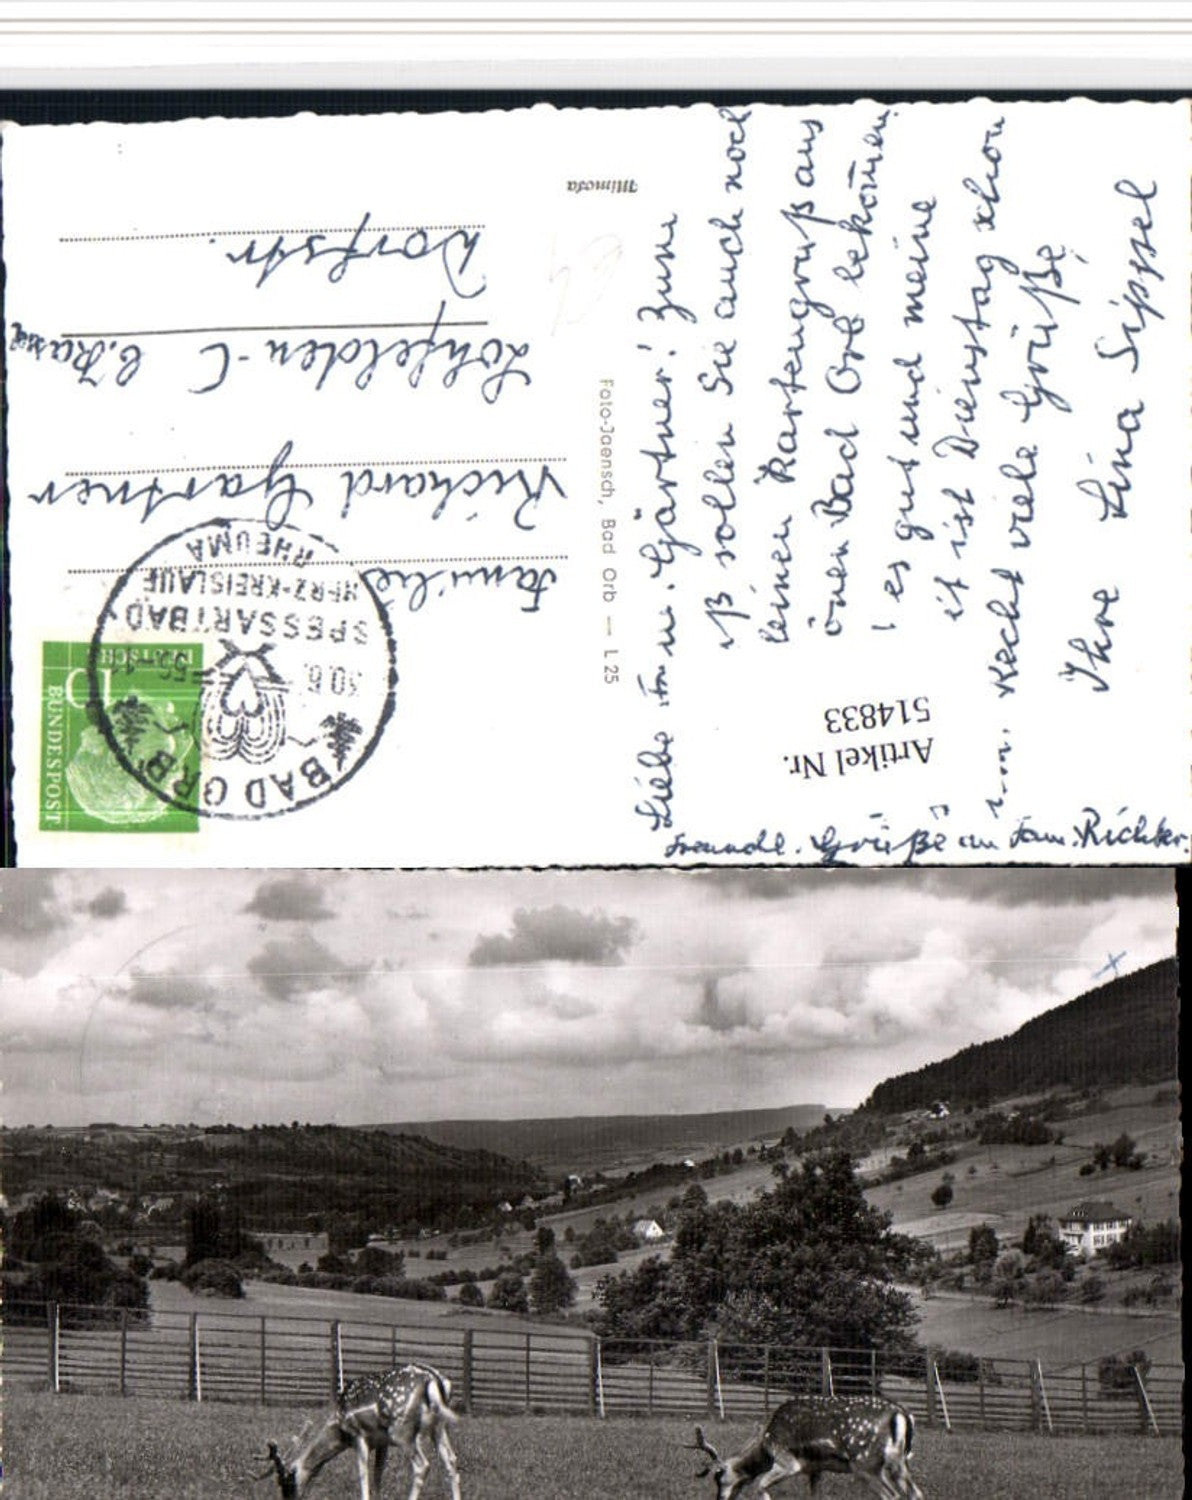 Mimosa
Foto-Jaensch, Bad Orb — L 25
Familie
Richard Gartner
Lohfelden-C b. Kassel
Dorfstr.
BAD ORB
30.6.56-11
SPESSARTBAD
HERZ-KREISLAUF
RHEUMA
DEUTSCHE
BUNDESPOST
10
Liebe Fam. Gärtner! Zum
ß sollen Sie auch noch
leinen Kartengruß aus
önen Bad Orb bekom̄en.
es gut und meine
it ist Dienstag schon
um. Recht viele Grüße
Ihre Lina Sippel
Freundl. Grüße an Fam. Richter.
Artikel Nr.
514833